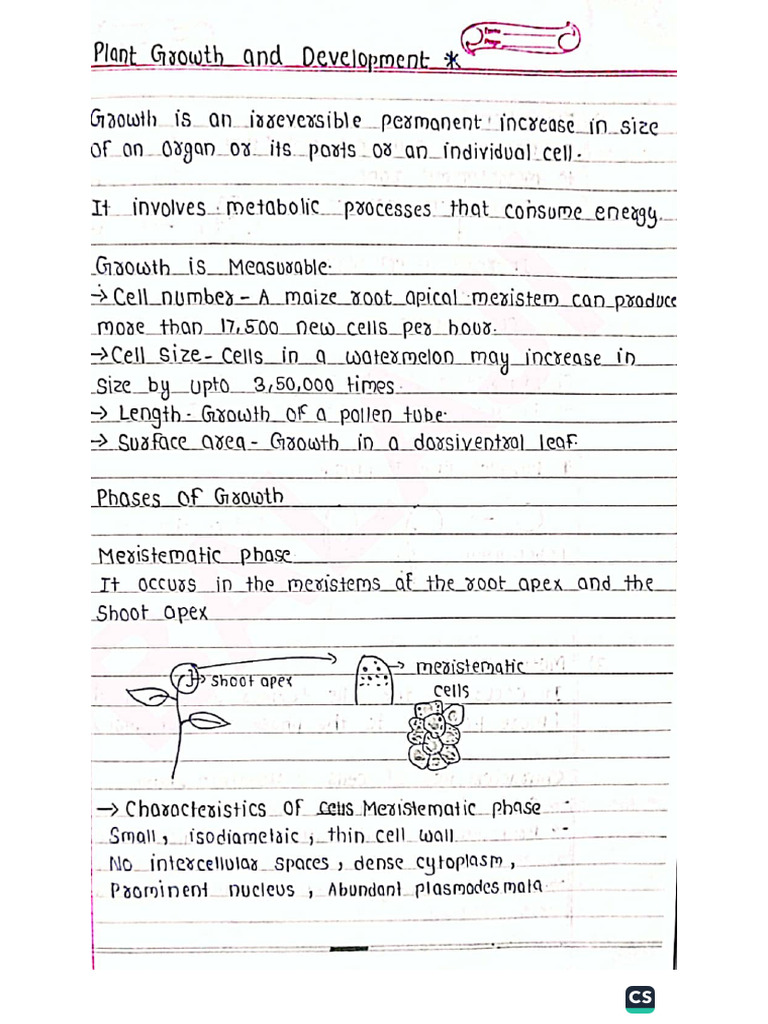 Plant Growth and Development *
Growth is an irreversible permanent increase in size
of an organ or its parts or an individual cell.
It involves metabolic processes that consume energy.
Growth is Measurable.
→ Cell number - A maize root apical meristem can produce
more than 17,500 new cells per hour.
→ Cell Size - Cells in a watermelon may increase in
size by upto 3,50,000 times.
→ Length - Growth of a pollen tube.
→ Surface area - Growth in a dorsiventral leaf.
Phases of Growth
Meristematic phase
It occurs in the meristems at the root apex and the
Shoot apex
→ Shoot apex
→ meristematic
cells
→ Characteristics of cells Meristematic phase
Small, isodiametric, thin cell wall
No intercellular spaces, dense cytoplasm,
Prominent nucleus, Abundant plasmodesmata
CS